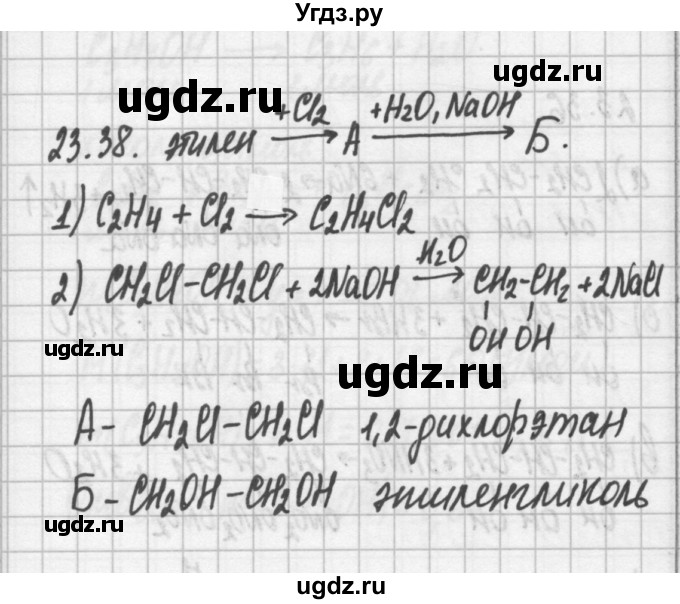 Угдз.ру
ugdz.ru
ugdz.ru
23.38. этилен +Cl2 → А +H2O, NaOH → Б.
1) C2H4 + Cl2 → C2H4Cl2
2) CH2Cl-CH2Cl + 2NaOH H2O → CH2-CH2 + 2NaCl
OH OH
ugdz.ru
ugdz.ru
А- CH2Cl-CH2Cl 1,2-дихлорэтан
Б-CH2OH-CH2OH этиленгликоль
ugdz.ru
ugdz.ru
ugdz.ru